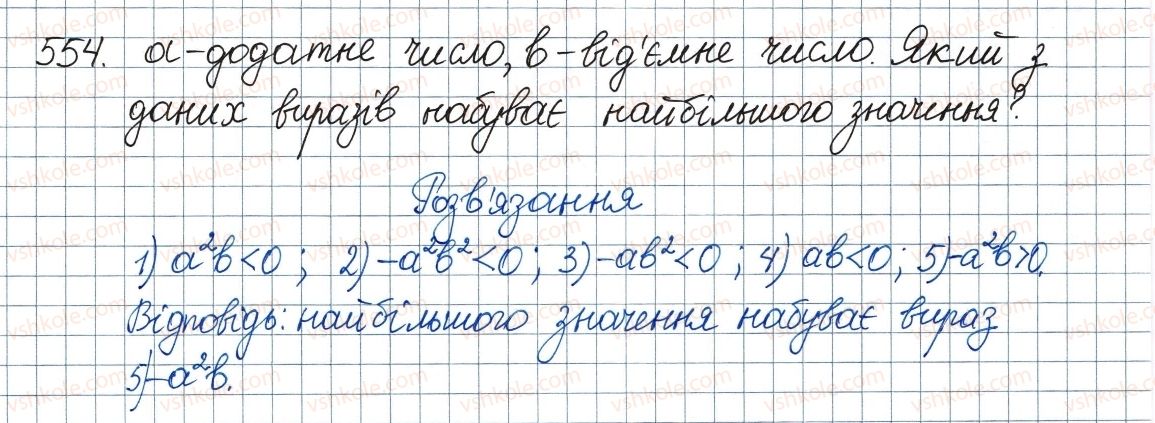 554. a-додатне число, b-від'ємне число. Який з
даних виразів набуває найбільшого значення?
Розв'язання
1) a²b<0; 2) -a²b²<0; 3) -ab²<0; 4) ab<0; 5) -a²b>0.
Відповідь: найбільшого значення набуває вираз
5) -a²b.